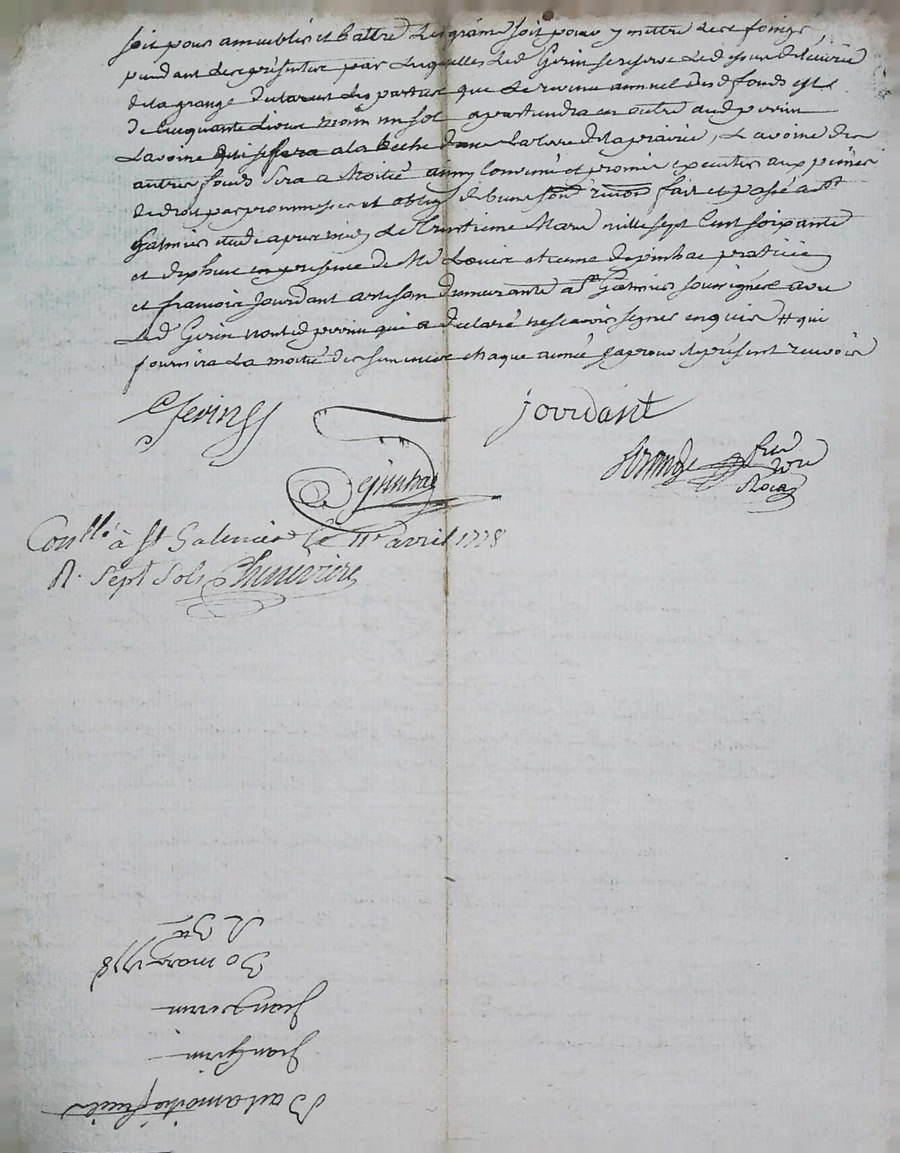 soit pour ameublir et battre les grains soit pour y mettre des foings,
pendant les présentes par lesquelles led Gerin se reserve le dessus de l'écurie
de la grange declarent les parties que le revenu annuel desd fonds est
de cinquante livres moin un sol apartiendra en outre aud perrin
l'avoine qui se fera a la beche dans la terre de la prairie, l'avoine des
autres fonds sera a Moitié ainsy convenu et promis executer aux peines
de droit par promesses et oblig fait et passé a st
Galmier etude apres midy le trentieme Mars mille sept cent soixante
et dix huit en presence de Me Louis etienne depinhac praticien
et francois Jourdant artisan demeurants a st Galmier soussignés avec
led Gerin non led perrin qui a declaré ne scavoir signer enquis # qui
fournira la moitié des semences chaque année aprouvé le présent renvois
Gerin
jourdant
Depinhac
Conllé à St Galmier le 11e avril 1778
R. Sept sols Chenevière
Bail a moitié fruits
Jean Gerin
Jean perrin
30 mars 1778